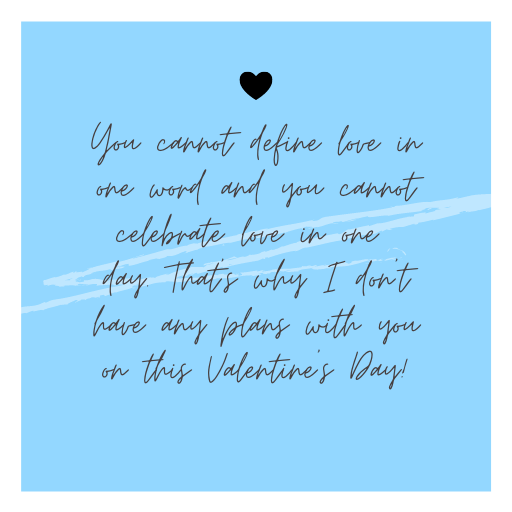 You cannot define love in
one word and you cannot
celebrate love in one
day. That's why I don't
have any plans with you
on this Valentine's Day!